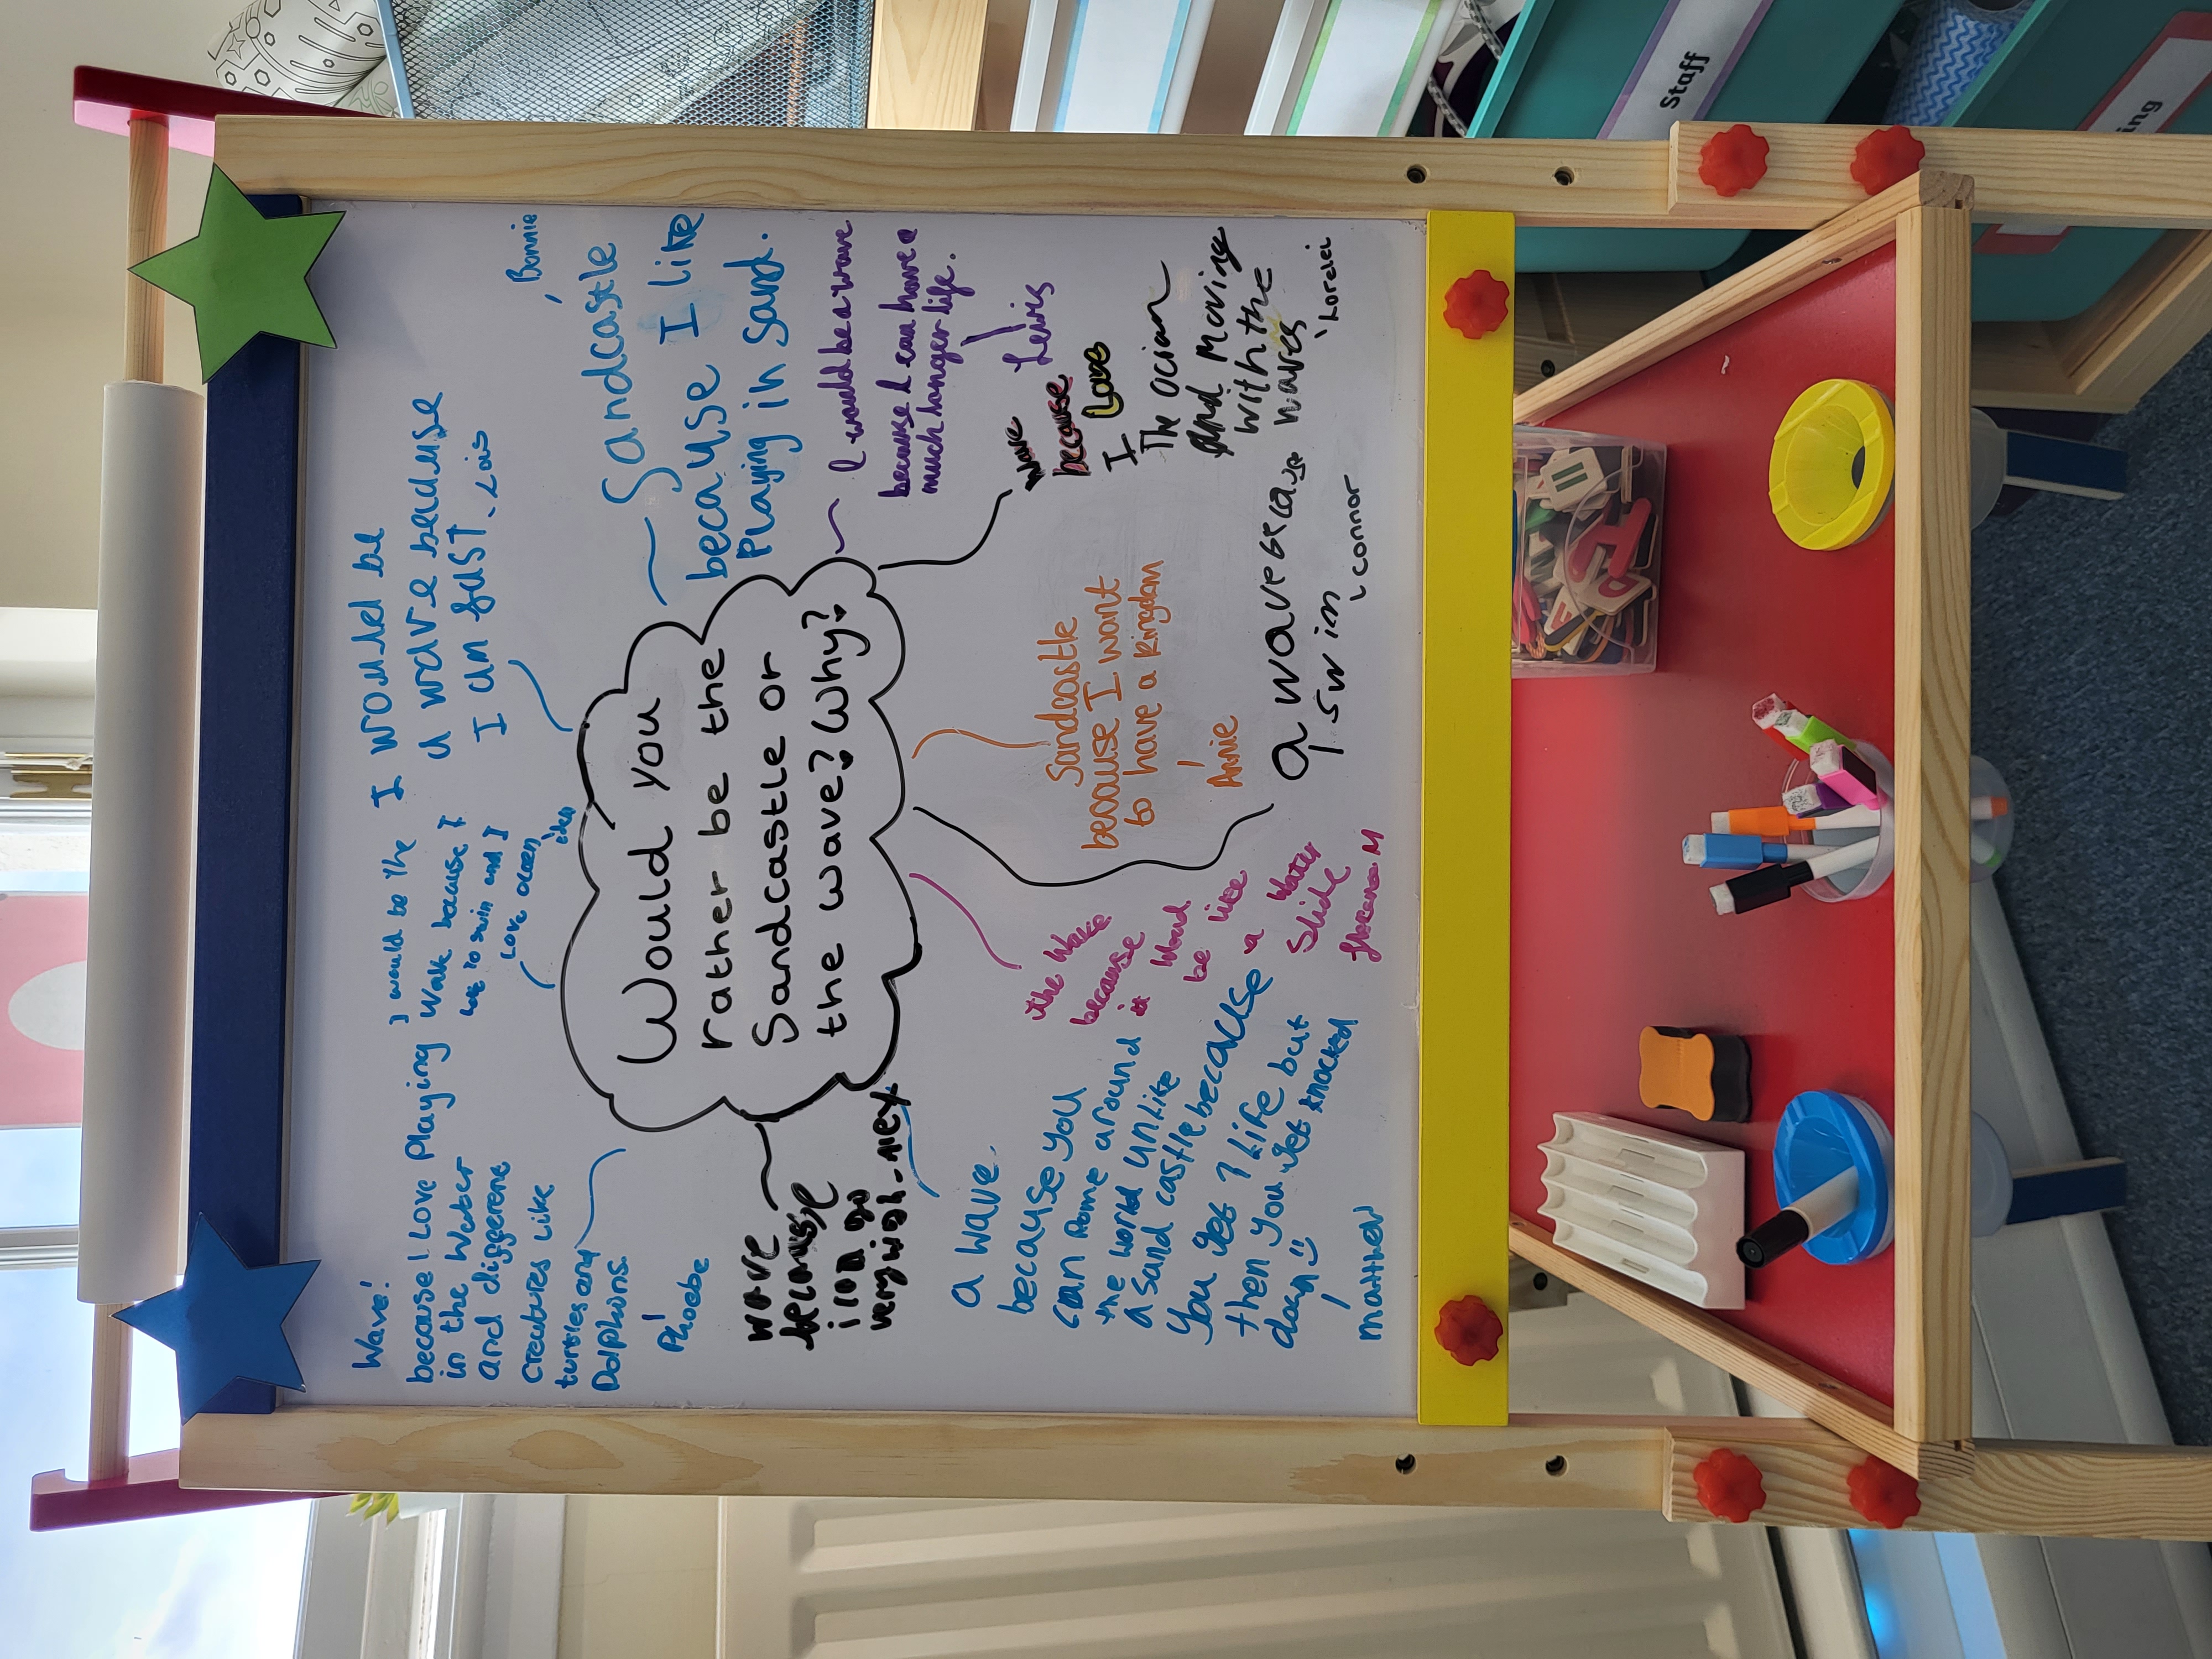 Would you
rather be the
Sandcastle or
the wave? Why?
Wave!
because I Love Playing
in the Water
and differene
creatures Like
turtles and
Dolphins.
Phoebe
I would be the
because I
to swim and I
Love ocean
I would be
a wave because
I am fast
Lois
Bonnie
Sandcastle
because I like
Playing in sand.
I would be a wave
because I can have a
much longer life.
Lewis
wave
because
I Love
The ocian
and Moving
with the
waves
Lorelei
a wave because
I swim
connor
Sandcastle
because I want
to have a kingdom
Annie
the Wave
because
it Woud
be like
a Water
Slide
M
a wave.
because you
can rome around
the world unlike
a sand castle because
You get 1 Life but
then you get knocked
down
matthew
wave
because
i can go
very
- Alex
Staff
ing